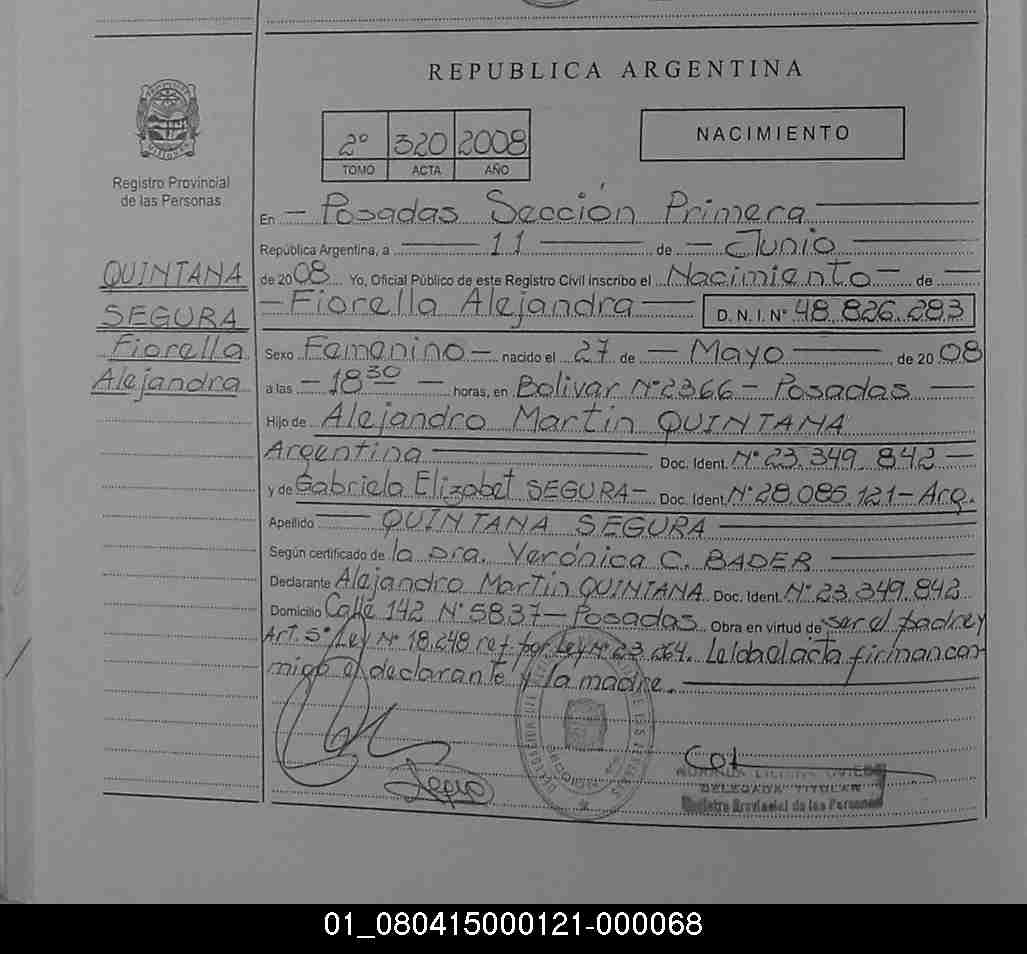 REPUBLICA ARGENTINA
2º 320 2008
TOMO ACTA AÑO
NACIMIENTO
Registro Provincial
de las Personas
QUINTANA
SEGURA
Fiorella
Alejandra
En — Posadas Sección Primera
República Argentina, a 11 de — Junio
de 2008 Yo, Oficial Público de este Registro Civil inscribo el Nacimiento — de —
— Fiorella Alejandra — D. N. I. Nº 48.826.283
Sexo Femenino — nacido el 27 de — Mayo de 20 08
a las — 18 30 — horas, en Bolivar Nº 2366 — Posadas —
Hijo de Alejandro Martin QUINTANA
Argentina Doc. Ident. Nº 23.349.842 —
y de Gabriela Elizabet SEGURA — Doc. Ident. Nº 28.085.121 — Arg.
Apellido QUINTANA SEGURA
Según certificado de la Dra. Verónica C. BADER
Declarante Alejandro Martin QUINTANA Doc. Ident. Nº 23.349.842
Domicilio Calle 142 Nº 5837 — Posadas Obra en virtud de ser el padre y
Art. 5º Ley Nº 18.248 ref. por Ley Nº 23.264. Leída el acta firman con-
migo el declarante y la madre.
DELEGADA TITULAR
Registro Provincial de las Personas
01_080415000121-000068